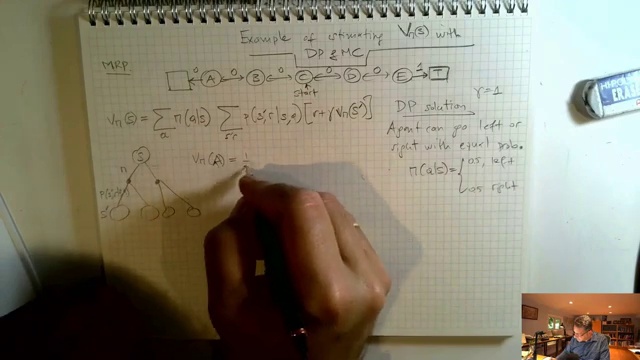 Example of estimating Vπ(s) with
DP & MC
MRP
0 A 0 B 0 C 0 D 0 E 1 T
start
Vπ(s) = Σ π(a|s) Σ p(s',r|s,a) [r+γVπ(s')]
a s'r
DP solution γ=1
Agent can go left or
right with equal prob.
π(a|s) = { 0.5, left
0.5 right
S
π
s'
Vπ(A) = 1
ERAS